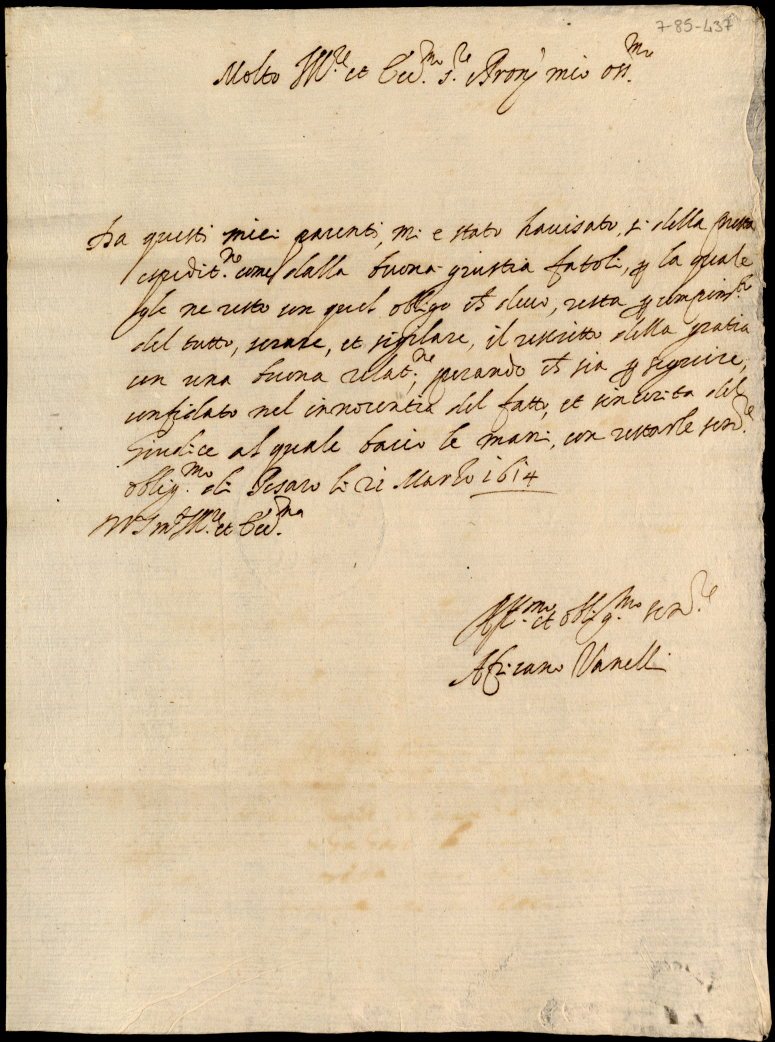 7-85-437
Molto Ill.re et Ecc.mo s.re Pron' mio oss.mo
Da questi miei parenti, mi e stato havisato, si della presta
espedit.ne come dalla buona giustia fatoli, p la quale
gle ne resto con quel obligo ch devo, resta p compim.to
del tutto, serare, et sigilare, il restritto della gratia
con una buona relat.ne, sperando ch sia p seguire,
confidato nel innocentia del fatto, et sincerita del
Giudice al quale bacio le mani, con restarle ser.re
oblig.mo di Pesaro li 21 Marzo 1614
D V S m.to Ill.re et Ecc.ma
Aff.mo et oblig.mo ser.re
Africano Vanelli